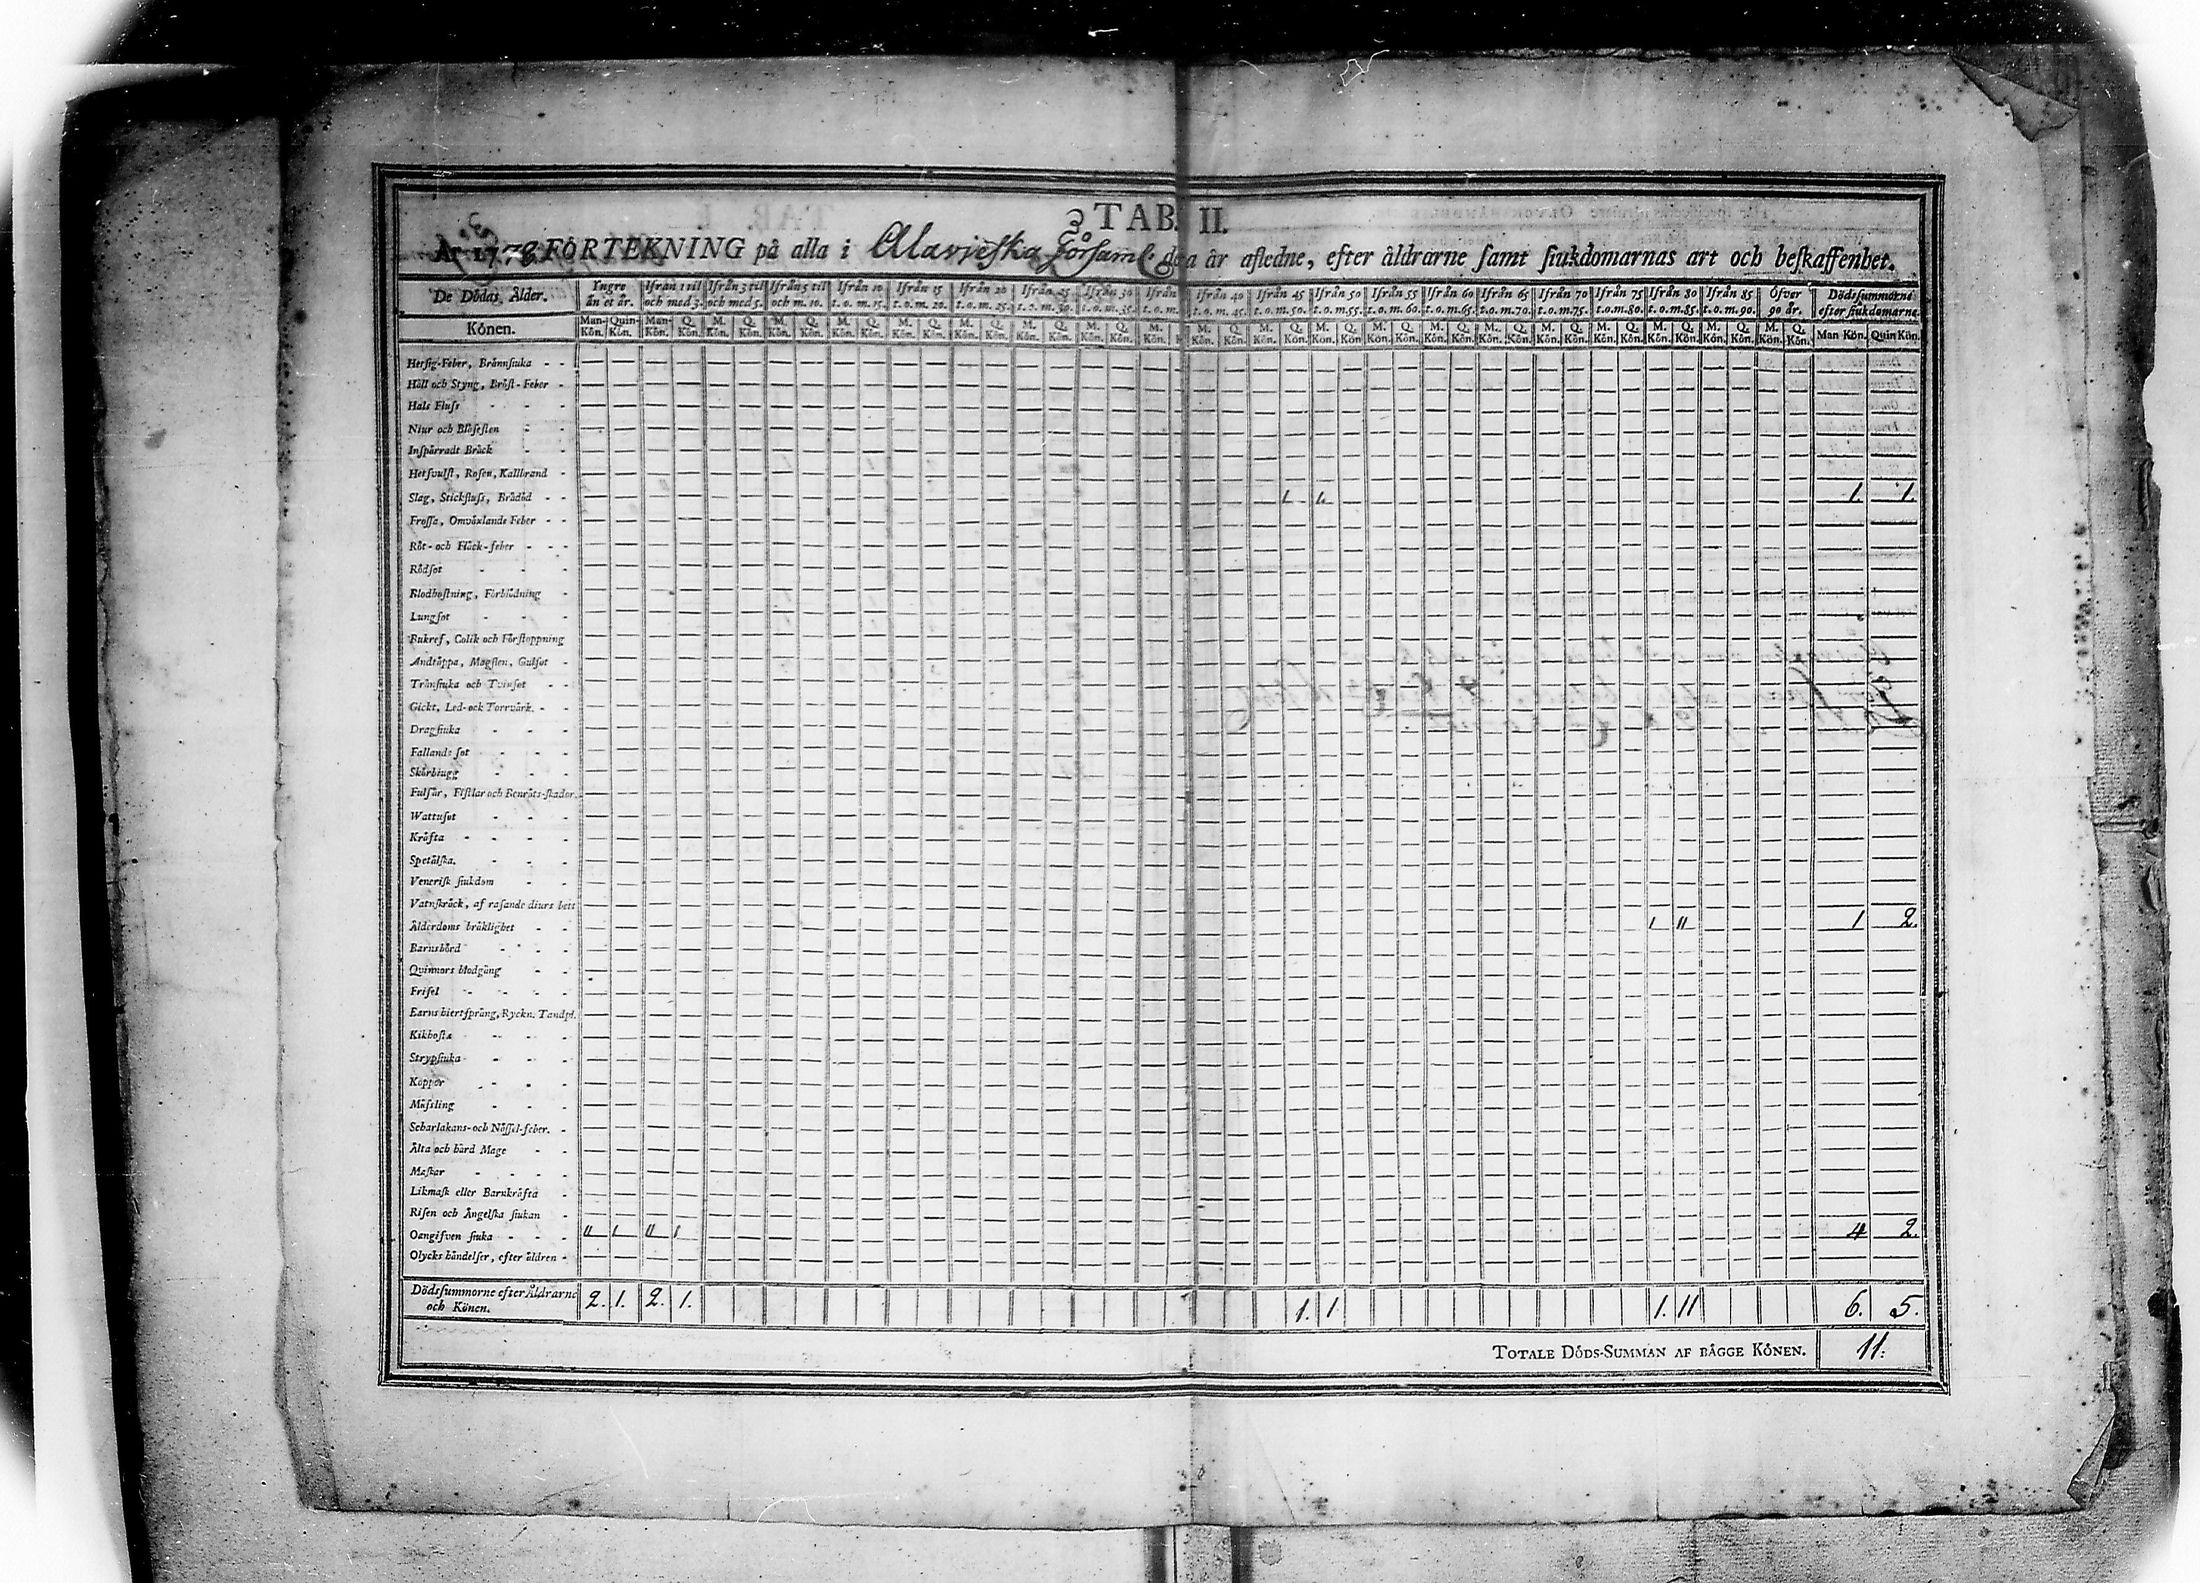 TAB. II.
År 1778 FÖRTEKNING på alla i Alavieska Församl. dea år afledne, efter åldrarne samt siukdomarnas art och beskaffenhet.
De Dödas Ålder. Yngre än et år. Ifrån 1 til och med 3. Ifrån 3 til och med 5. Ifrån 5 til och m. 10. Ifrån 10 t. o. m. 15. Ifrån 15 t. o. m. 20. Ifrån 20 t. o. m. 25. Ifrån 25 t. o. m. 30. Ifrån 30 t. o. m. 35. Ifrån t. o. m. Ifrån 40 t. o. m. 45. Ifrån 45 t. o. m. 50. Ifrån 50 t. o. m. 55. Ifrån 55 t. o. m. 60. Ifrån 60 t. o. m. 65. Ifrån 65 t. o. m. 70. Ifrån 70 t. o. m. 75. Ifrån 75 t. o. m. 80. Ifrån 80 t. o. m. 85. Ifrån 85 t. o. m. 90. Öfver 90 år. Dödssummorne efter siukdomarne.
Könen. Man-Kön. Quin-Kön. Man-Kön. Q. Kön. M. Kön. Q. Kön. M. Kön. Q. Kön. M. Kön. Q. Kön. M. Kön. Q. Kön. M. Kön. Q. Kön. M. Kön. Q. Kön. M. Kön. Q. Kön. M. Kön. M. Kön. Q. Kön. M. Kön. Q. Kön. M. Kön. Q. Kön. M. Kön. Q. Kön. M. Kön. Q. Kön. M. Kön. Q. Kön. M. Kön. Q. Kön. M. Kön. Q. Kön. M. Kön. Q. Kön. M. Kön. Q. Kön. M. Kön. Q. Kön. Man Kön. Quin Kön.
Hetsig-Feber, Brännsiuka - -
Håll och Styng, Bröst-Feber -
Hals Fluss - - - -
Niur och Blåsesten - -
Inspärradt Bråck - -
Hetsvulst, Rosen, Kallbrand -
Slag, Stickfluss, Brådöd - - 1. 1. 1. 1.
Frossa, Omväxlande Feber - -
Röt- och Fläck-feber - - -
Rödsot - - -
Blodhostning, Förblödning -
Lungsot - - -
Bukref, Colik och Förstoppning
Andtäppa, Magsten, Gulsot -
Trånsiuka och Tvinsot - -
Gickt, Led- ock Torrvärk. - -
Dragsiuka - - -
Fallande sot - - -
Skörbiugg - - -
Fulsår, Fistlar och Benröts-skador.
Wattusot - - -
Kräfta - - - -
Spetälska. - - -
Venerisk siukdom - -
Vatnskräck, af rasande diurs bett
Ålderdoms bräklighet - - 1 11 1 2.
Barnsbörd - - -
Quinnors blodgång - -
Frisel - - - -
Barns hiertsprång, Ryckn. Tandpl.
Kikhosta - - -
Strypsiuka - - -
Koppor - - - -
Mässling - - -
Scharlakans- och Nässel-feber. -
Älta och hård Mage - -
Maskar - - - -
Likmask eller Barnkräfta -
Risen och Ängelska siukan -
Oangifven siuka - - - 11 1 11 1 4 2.
Olycks händelser, efter åldren -
Dödssummorne efter Åldrarne och Könen. 2. 1. 2. 1. 1. 1 1. 11 6. 5.
TOTALE DÖDS-SUMMAN AF BÅGGE KÖNEN. 11.